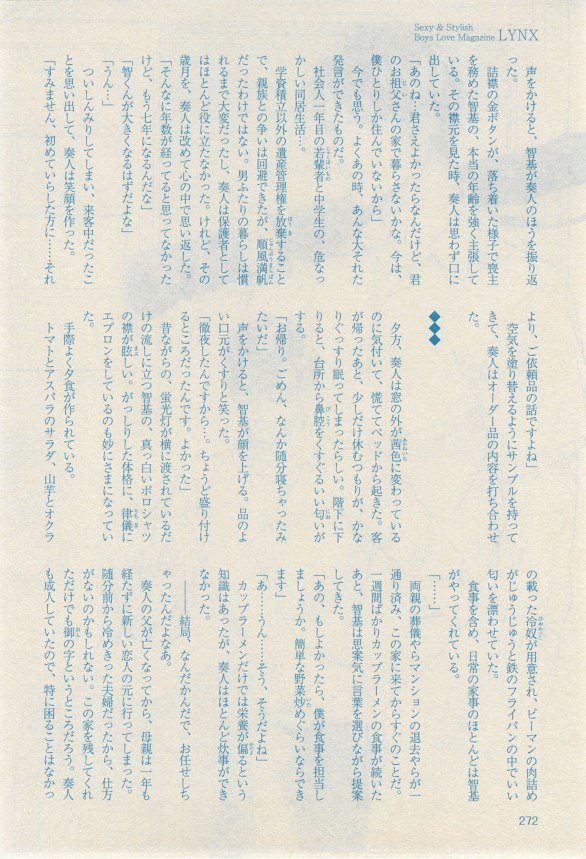 Sexy & Stylish
Boys Love Magazine LYNX
声をかけると、智基が奏人のほうを振り返
った。
詰襟の金ボタンが、落ち着いた様子で喪主
を務めた智基の、本当の年齢を強く主張して
いる。その襟元を見た時、奏人は思わず口に
出していた。
「あのね…君さえよかったらなんだけど、君
のお祖父さんの家で暮らさないかな。今は、
僕ひとりしか住んでいないから」
今でも思う。よくあの時、あんな大それた
発言ができたものだ。
社会人一年目の若輩者と中学生の、危なっ
かしい同居生活…。
学資積立以外の遺産管理権を放棄すること
で、親族との争いは回避できたが、順風満帆
だったわけではない。男ふたりの暮らしは慣
れるまで大変だったし、奏人は保護者として
はほとんど役に立たなかった。けれど、その
歳月を、奏人は改めて心の中で思い返した。
「そんなに年数が経ってると思ってなかった
けど、もう七年になるんだな」
「智くんが大きくなるはずだよな」
「うん…」
ついしんみりしてしまい、来客中だったこ
とを思い出して、奏人は笑顔を作った。
「すみません、初めていらした方に……それ
より、ご依頼品の話ですよね」
空気を塗り替えるようにサンプルを持って
きて、奏人はオーダー品の内容を打ち合わせ
た。
◆◆◆
夕方、奏人は窓の外が茜色に変わっている
のに気付いて、慌ててベッドから起きた。客
が帰ったあと、少しだけ休むつもりが、かな
りぐっすり眠ってしまったらしい。階下に下
りると、台所から鼻腔をくすぐるいい匂いが
する。
「お帰り。ごめん、なんか随分寝ちゃったみ
たいだ」
声をかけると、智基が顔を上げる。品のよ
い口元がくすりと笑った。
「徹夜したんですから…。ちょうど盛り付け
るところだったんです。よかった」
昔ながらの、蛍光灯が横に渡されているだ
けの流しに立つ智基の、真っ白いポロシャツ
の襟が眩しい。がっしりした体格に、律儀に
エプロンをしているのも妙にさまになってい
た。
手際よく夕食が作られている。
トマトとアスパラのサラダ、山芋とオクラ
の載った冷奴が用意され、ピーマンの肉詰め
がじゅうじゅうと鉄のフライパンの中でいい
匂いを漂わせていた。
食事を含め、日常の家事のほとんどは智基
がやってくれている。
「……」
両親の葬儀やらマンションの退去やらが一
通り済み、この家に来てからすぐのことだ。
一週間ばかりカップラーメンの食事が続いた
あと、智基は思案気に言葉を選びながら提案
してきた。
「あの、もしよかったら、僕が食事を担当し
ましょうか。簡単な野菜炒めぐらいならでき
ます」
「あ……うん……そう、そうだよね」
カップラーメンだけでは栄養が偏るという
知識はあったが、奏人はほとんど炊事ができ
なかった。
――結局、なんだかんだで、お任せしち
ゃったんだよなあ。
奏人の父が亡くなってから、母親は一年も
経たずに新しい恋人の元に行ってしまった。
随分前から冷めきった夫婦だったから、仕方
がないのかもしれない。この家を残してくれ
ただけでも御の字というところだろう。奏人
も成人していたので、特に困ることはなかっ
272